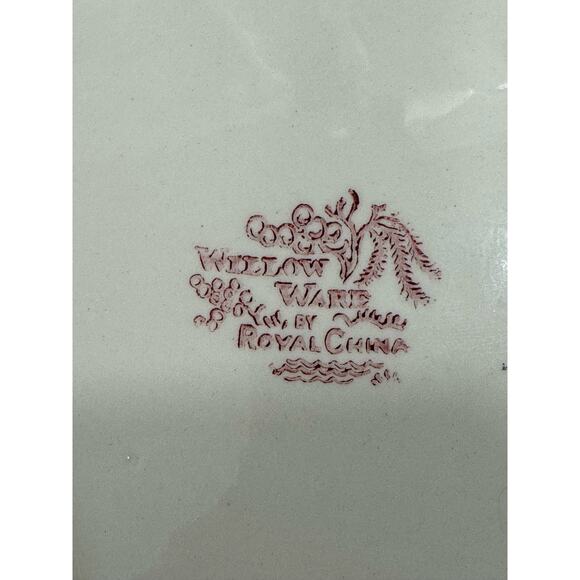 WILLOW
WARE
BY
ROYAL CHINA